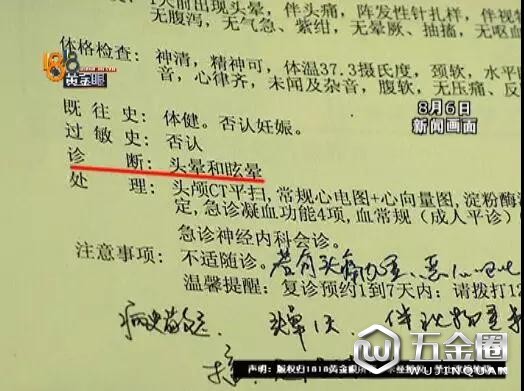 1天前出现头晕，伴头痛，阵发性针扎样，伴视
无腹泻。无气急、紫绀，无晕厥、抽搐，无呕血
体格检查：神清，精神可，体温37.3摄氏度，颈软，水平眼
音，心律齐，未闻及杂音，腹软，无压痛、反
1818
黄金眼
8月6日
新闻画面
既往史：体健。否认妊娠。
过敏史：否认
诊断：头晕和眩晕
处理：头颅CT平扫，常规心电图+心向量图，淀粉酶测
定，急诊凝血功能4项，血常规（成人平诊）
急诊神经内科会诊。
注意事项：不适随诊。若有头痛加重、恶心呕吐
温馨提醒：复诊预约1到7天内：请拨打12
头晕1天，伴视物
声明：版权归1818黄金眼所
五金圈
WUJINQUAN